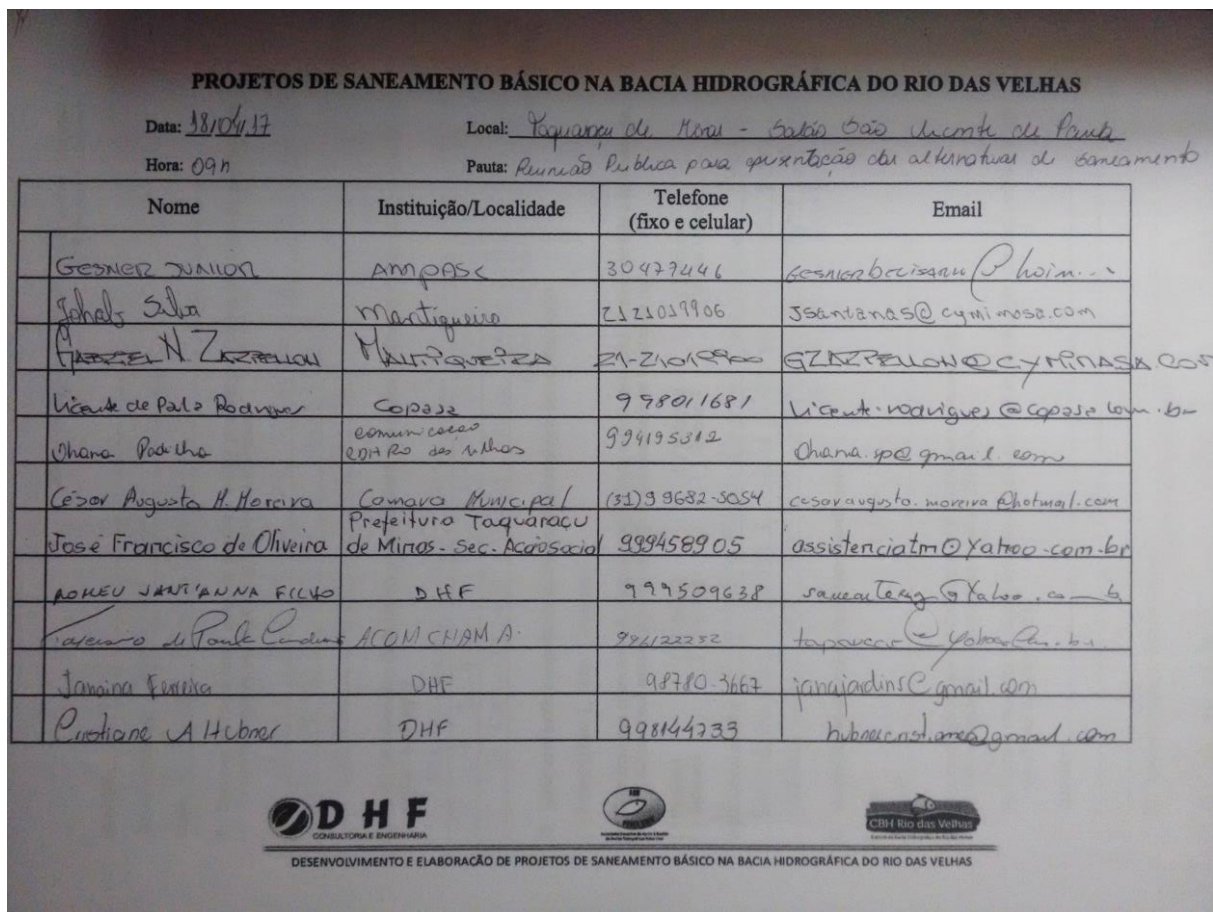 PROJETOS DE SANEAMENTO BÁSICO NA BACIA HIDROGRÁFICA DO RIO DAS VELHAS
Data: 18/04/17 Local: Taquaraçu de Minas - Salão São Vicente de Paula
Hora: 09h Pauta: Reunião Publica para apresentação das alternativas de saneamento
Nome Instituição/Localidade Telefone (fixo e celular) Email
GESNER JUNIOR AMPASC 30479446
Silva Mantiqueira 2121019906 Jsantanas@cymimasa.com
GABRIEL N. ZARPELLON MANTIQUEIRA 21-21019900 GZARPELLON@CYMIMASA.COM
Vicente de Paula Rodrigues Copasa 998011681 Vicente.rodrigues@copasa.com.br
Ohana Padilha comunicação CBH Rio das Velhas 994195312 Ohana.sp@gmail.com
César Augusto H. Moreira Camara Municipal (31)99682-5054 cesaraugusto.moreira@hotmail.com
José Francisco de Oliveira Prefeitura Taquaraçu de Minas - Sec. Açãosocial 999458905 assistenciatm@yahoo.com.br
ROMEU SANT'ANNA FILHO DHF 999509638
de Paula ACOMCHAMA.
Janaina Ferreira DHF 98780-3667 janajardins@gmail.com
Cristiane A Hubner DHF 998144733 hubnercristiane@gmail.com
DHF
CONSULTORIA E ENGENHARIA
CBH Rio das Velhas
DESENVOLVIMENTO E ELABORACÃO DE PROJETOS DE SANEAMENTO BÁSICO NA BACIA HIDROGRÁFICA DO RIO DAS VELHAS